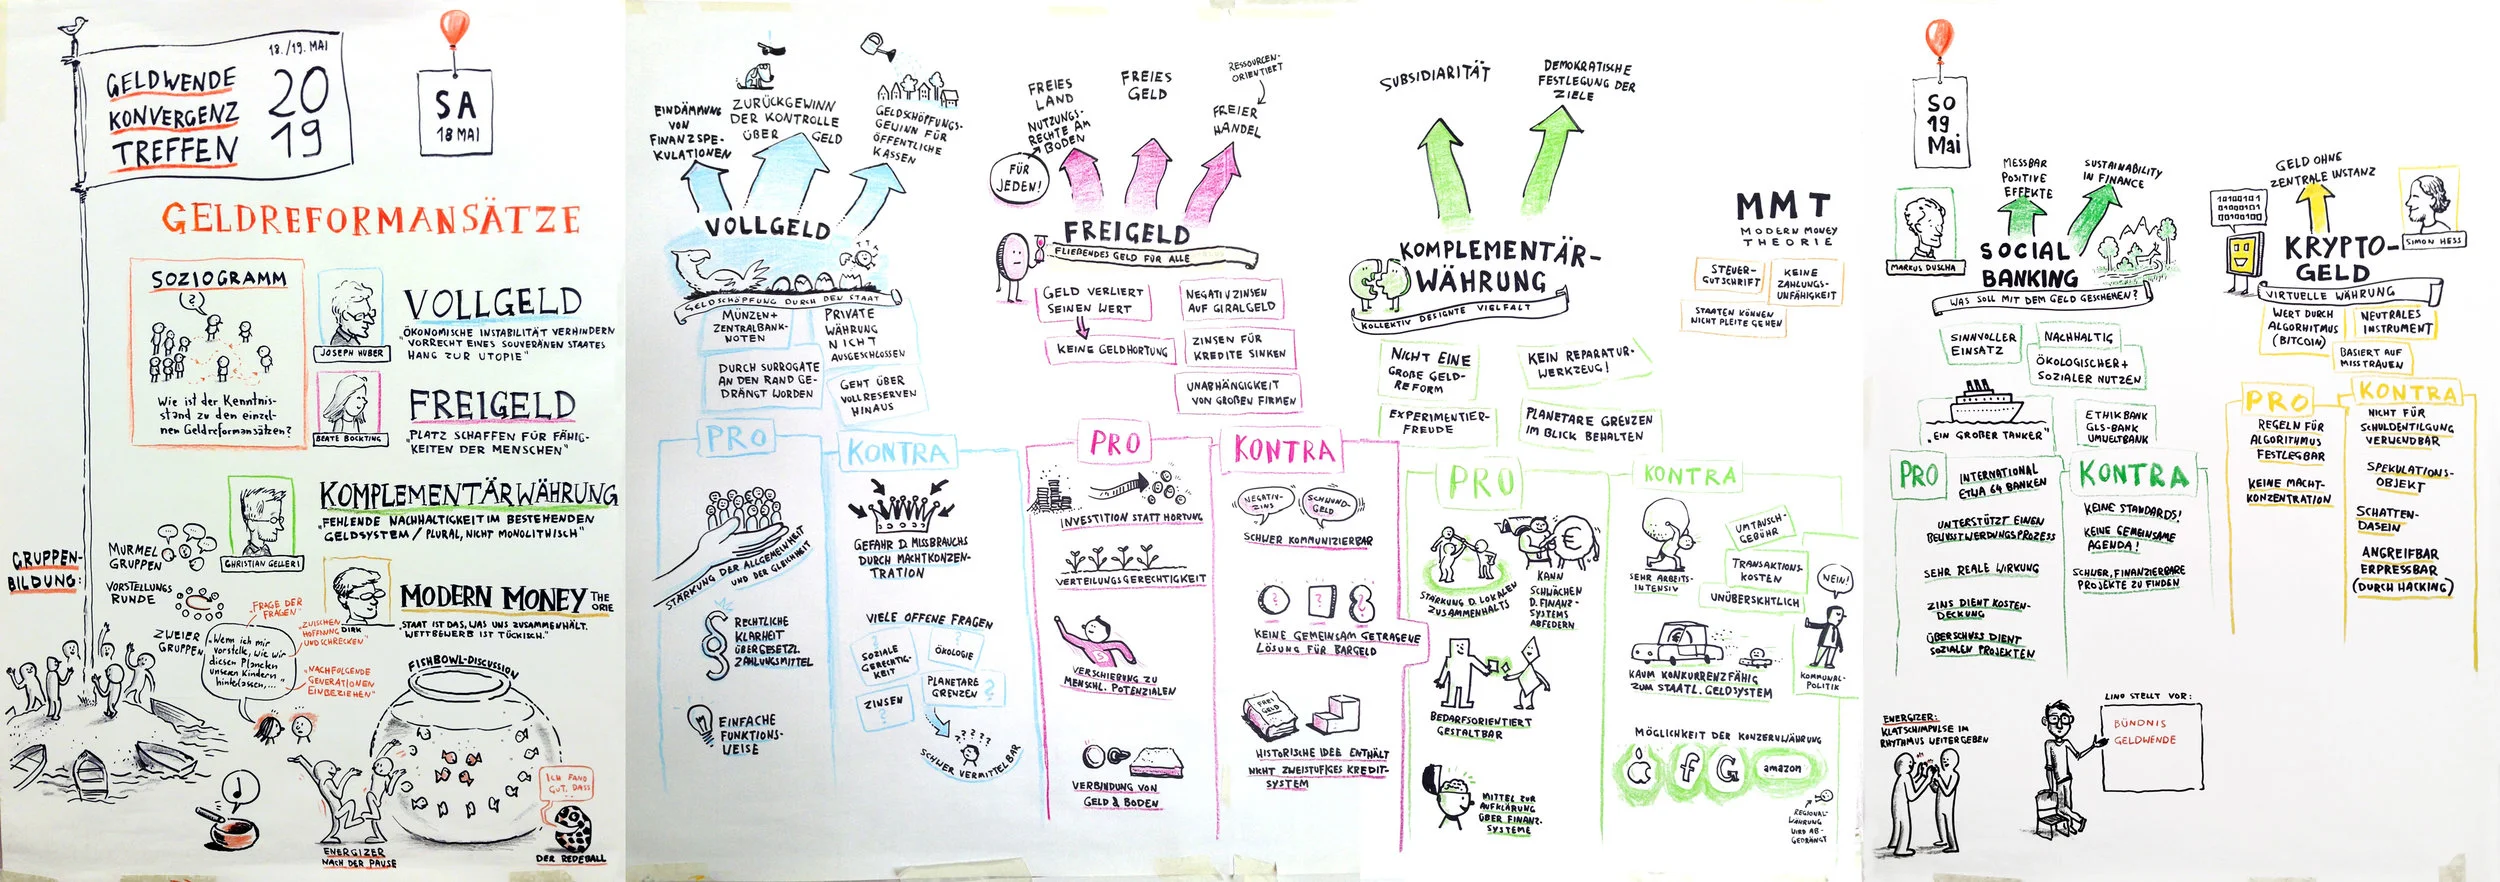 GELDWENDE
KONVERGENZ
TREFFEN
18./19. MAI
20
19
SA
18 MAI
GELDREFORMANSÄTZE
SOZIOGRAMM
?
Wie ist der Kenntnis-
stand zu den einzel-
nen Geldreformansätzen?
JOSEPH HUBER
VOLLGELD
"ÖKONOMISCHE INSTABILITÄT VERHINDERN
VORRECHT EINES SOUVERÄNEN STAATES
HANG ZUR UTOPIE"
BEATE BOCKTING
FREIGELD
"PLATZ SCHAFFEN FÜR FÄHIG-
KEITEN DER MENSCHEN"
CHRISTIAN GELLERI
KOMPLEMENTÄRWÄHRUNG
"FEHLENDE NACHHALTIGKEIT IM BESTEHENDEN
GELDSYSTEM / PLURAL, NICHT MONOLITHISCH"
DIRK
MODERN MONEY THE
ORIE
"STAAT IST DAS, WAS UNS ZUSAMMENHÄLT.
WETTBEWERB IST TÜCKISCH."
GRUPPEN-
BILDUNG:
MURMEL
GRUPPEN
VORSTELLUNGS
RUNDE
ZWEIER
GRUPPEN
"FRAGE DER
FRAGEN"
"Wenn ich mir
vorstelle, wie wir
diesen Planeten
unseren Kindern
hinterlassen,..."
"ZWISCHEN
HOFFNUNG
UND SCHRECKEN"
"NACHFOLGENDE
GENERATIONEN
EINBEZIEHEN"
FISHBOWL-DISCUSSION
ENERGIZER
NACH DER PAUSE
ICH FAND
GUT, DASS
DER REDEBALL
EINDÄMMUNG
VON
FINANZSPE-
KULATIONEN
ZURÜCKGEWINN
DER KONTROLLE
ÜBER GELD
GELDSCHÖPFUNGS-
GEWINN FÜR
ÖFFENTLICHE
KASSEN
VOLLGELD
GELDSCHÖPFUNG DURCH DEN STAAT
MÜNZEN+
ZENTRALBANK-
NOTEN
PRIVATE
WÄHRUNG
NICHT
AUSGESCHLOSSEN
DURCH SURROGATE
AN DEN RAND GE-
DRÄNGT WORDEN
GEHT ÜBER
VOLLRESERVEN
HINAUS
PRO
STÄRKUNG DER ALLGEMEINHEIT
UND DER GLEICHHEIT
§
RECHTLICHE
KLARHEIT
ÜBER GESETZL.
ZAHLUNGSMITTEL
EINFACHE
FUNKTIONS-
WEISE
KONTRA
GEFAHR D. MISSBRAUCHS
DURCH MACHTKONZEN-
TRATION
VIELE OFFENE FRAGEN
SOZIALE
GERECHTIG-
KEIT
ÖKOLOGIE
PLANETARE
GRENZEN
ZINSEN
????
SCHWER VERMITTELBAR
FREIES
LAND
NUTZUNGS-
RECHTE AM
BODEN
FÜR
JEDEN!
FREIES
GELD
RESSOURCEN-
ORIENTIERT
FREIER
HANDEL
FREIGELD
FLIEßENDES GELD FÜR ALLE
GELD VERLIERT
SEINEN WERT
KEINE GELDHORTUNG
NEGATIVZINSEN
AUF GIRALGELD
ZINSEN FÜR
KREDITE SINKEN
UNABHÄNGIGKEIT
VON GROßEN FIRMEN
PRO
INVESTITION STATT HORTUNG
VERTEILUNGSGERECHTIGKEIT
VERSCHIEBUNG ZU
MENSCHL. POTENZIALEN
VERBINDUNG VON
GELD & BODEN
KONTRA
NEGATIV-
ZINS
SCHWUND-
GELD
SCHWER KOMMUNIZIERBAR
? ? ?
KEINE GEMEINSAM GETRAGENE
LÖSUNG FÜR BARGELD
FREI
GELD
HISTORISCHE IDEE ENTHÄLT
NICHT ZWEISTUFIGES KREDIT-
SYSTEM
SUBSIDIARITÄT
DEMOKRATISCHE
FESTLEGUNG DER
ZIELE
KOMPLEMENTÄR-
WÄHRUNG
KOLLEKTIV DESIGNTE VIELFALT
NICHT EINE
GROßE GELD-
REFORM
KEIN REPARATUR-
WERKZEUG!
EXPERIMENTIER-
FREUDE
PLANETARE GRENZEN
IM BLICK BEHALTEN
PRO
STÄRKUNG D. LOKALEN
ZUSAMMENHALTS
€
KANN
SCHWÄCHEN
D. FINANZ-
SYSTEMS
ABFEDERN
BEDARFSORIENTIERT
GESTALTBAR
MITTEL ZUR
AUFKLÄRUNG
ÜBER FINANZ-
SYSTEME
KONTRA
SEHR ARBEITS-
INTENSIV
UMTAUSCH-
GEBÜHR
TRANSAKTIONS-
KOSTEN
UNÜBERSICHTLICH
NEIN!
KOMMUNAL-
POLITIK
€
KAUM KONKURRENZFÄHIG
ZUM STAATL. GELDSYSTEM
MÖGLICHKEIT DER KONZERNWÄHRUNG
f
G
amazon
REGIONAL-
WÄHRUNG
WIRD AB-
GEDRÄNGT
MMT
MODERN MONEY
THEORIE
STEUER-
GUTSCHRIFT
KEINE
ZAHLUNGS-
UNFÄHIGKEIT
STAATEN KÖNNEN
NICHT PLEITE GEHEN
SO
19
Mai
MARKUS DUSCHA
MESSBAR
POSITIVE
EFFEKTE
SUSTAINABILITY
IN FINANCE
SOCIAL
BANKING
WAS SOLL MIT DEM GELD GESCHEHEN?
SINNVOLLER
EINSATZ
NACHHALTIG
ÖKOLOGISCHER+
SOZIALER NUTZEN
"EIN GROßER TANKER"
ETHIKBANK
GLS-BANK
UMWELTBANK
PRO
INTERNATIONAL
ETWA 64 BANKEN
UNTERSTÜTZT EINEN
BEWUSSTWERDUNGSPROZESS
SEHR REALE WIRKUNG
ZINS DIENT KOSTEN-
DECKUNG
ÜBERSCHUSS DIENT
SOZIALEN PROJEKTEN
KONTRA
KEINE STANDARDS!
KEINE GEMEINSAME
AGENDA!
SCHWER, FINANZIERBARE
PROJEKTE ZU FINDEN
GELD OHNE
ZENTRALE INSTANZ
10100101
01000101
00100100
SIMON HESS
KRYPTO-
GELD
VIRTUELLE WÄHRUNG
WERT DURCH
ALGORHITMUS
(BITCOIN)
NEUTRALES
INSTRUMENT
BASIERT AUF
MISSTRAUEN
PRO
REGELN FÜR
ALGORITHMUS
FESTLEGBAR
KEINE MACHT-
KONZENTRATION
KONTRA
NICHT FÜR
SCHULDENTILGUNG
VERWENDBAR
SPEKULATIONS-
OBJEKT
SCHATTEN-
DASEIN
ANGREIFBAR
ERPRESSBAR
(DURCH HACKING)
ENERGIZER:
KLATSCHIMPULSE IM
RHYTHMUS WEITERGEBEN
LINO STELLT VOR:
BÜNDNIS
GELDWENDE